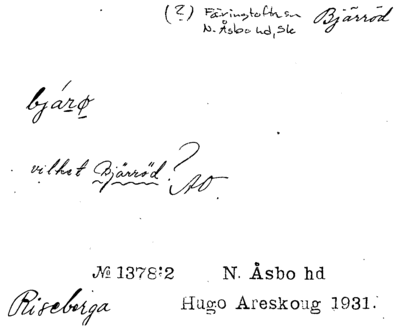 (?) Färingtofta sn Bjärröd
N. Åsbo hd, Sk
bjárø
vilket Bjärröd? AO.
№ 1378:2 N. Åsbo hd
Riseberga Hugo Areskoug 1931.